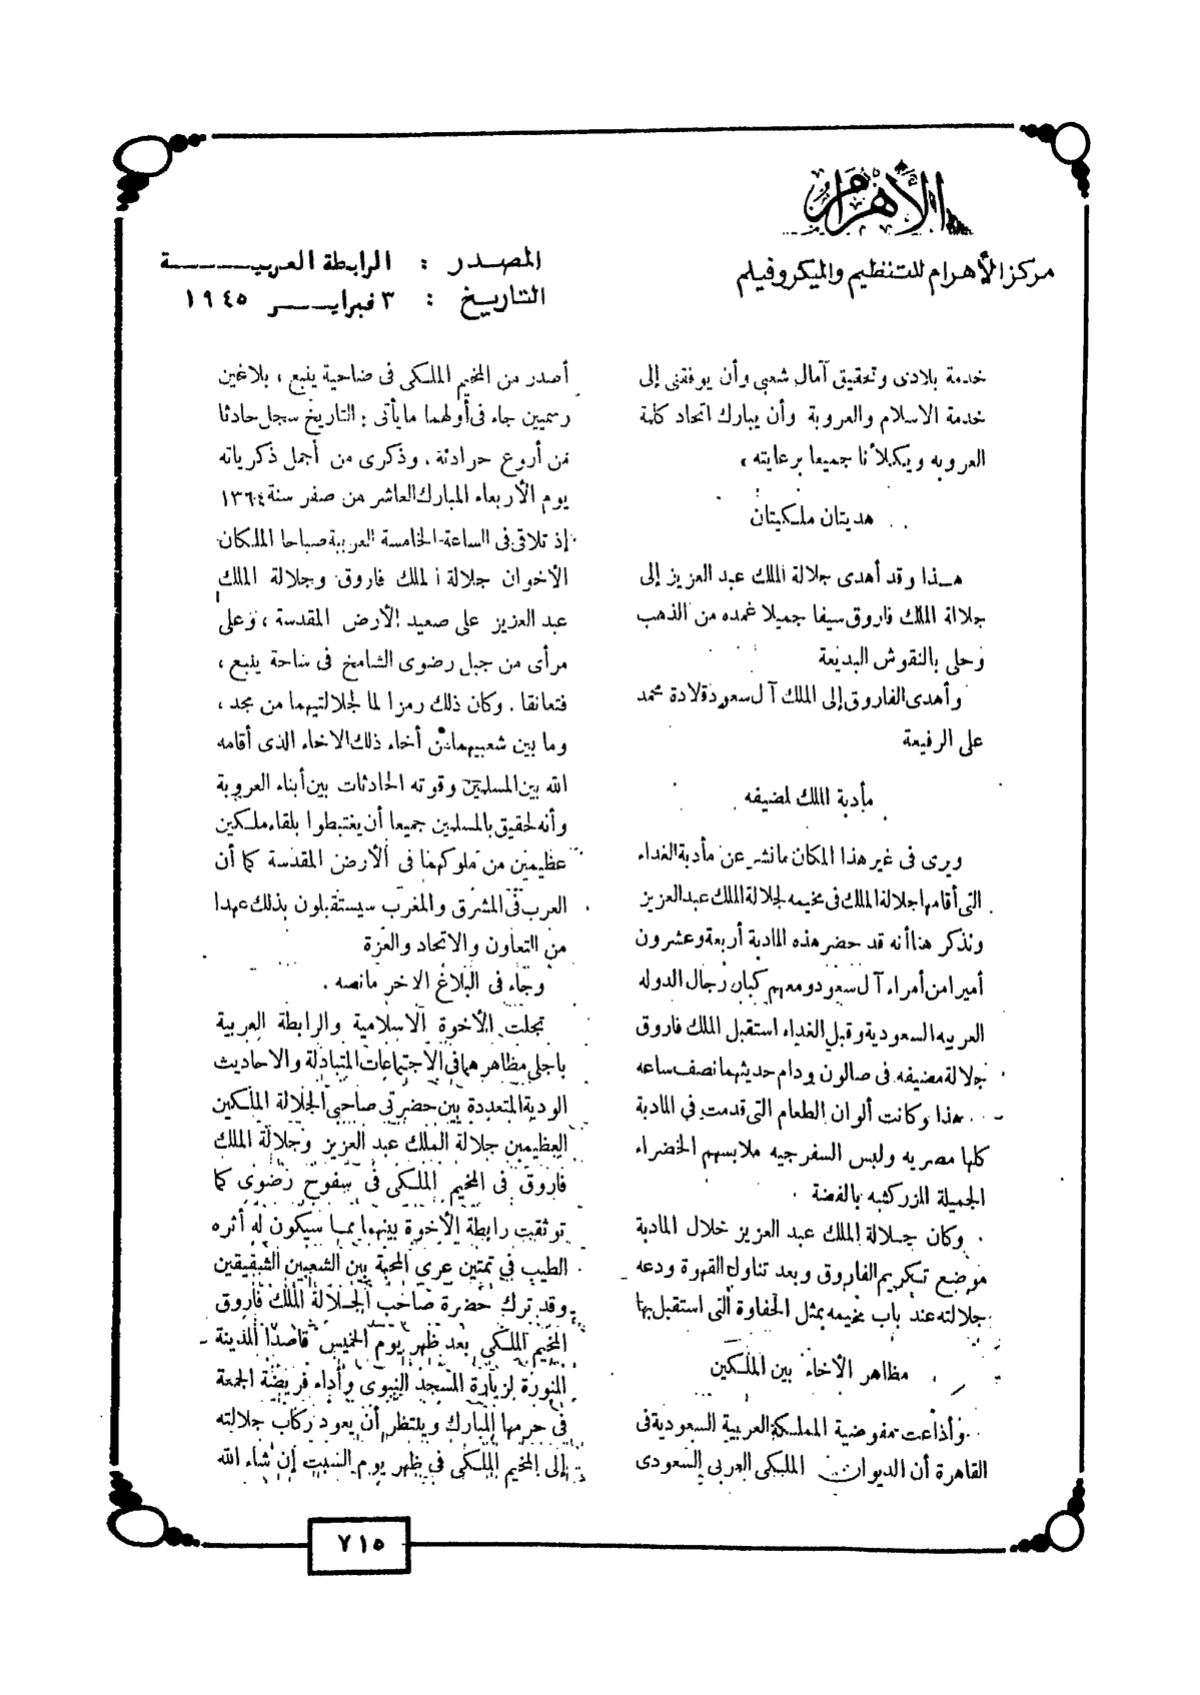 الأهرام
مركز الأهرام للتنظيم والميكروفيلم
المصدر : الرابطة العربية
التاريخ : ٣ فبراير ١٩٤٥
خدمة بلادى وتحقيق آمال شعبي وأن يوفقنى إلى
خدمة الاسلام والعروبة وأن يبارك اتحاد كلمة
العروبه ويكلأنا جميعا برعايته ،
هديتان ملكيتان
هذا وقد أهدى جلالة الملك عبد العزيز إلى
جلالة الملك فاروق سيفا جميلا غمده من الذهب
وحلى بالنقوش البديعة
وأهدى الفاروق إلى الملك آل سعود قلادة محمد
على الرفيعة
مأدبة الملك لضيفه
ويرى فى غير هذا المكان مانشر عن مأدبة الغداء
التى أقامها جلالة الملك فى مخيمه لجلالة الملك عبد العزيز
ونذكر هنا أنه قد حضر هذه المادبة أربعة وعشرون
أميرا من أمراء آل سعود ومعهم كبار رجال الدوله
العربيه السعودية وقبل الغداء استقبل الملك فاروق
جلالة مضيفه فى صالون ودام حديثهما نصف ساعه
هذا وكانت ألوان الطعام التى قدمت فى المادبة
كلها مصريه ولبس السفرجيه ملابسهم الخضراء
الجميلة المزركشه بالفضة .
وكان جلالة الملك عبد العزيز خلال المادبة
موضع تكريم الفاروق وبعد تناول القهوة ودعه
جلالته عند باب مخيمه بمثل الحفاوة التى استقبل بها
مظاهر الأخاء بين الملكين
وأذاعت مفوضية المملكة العربية السعودية فى
القاهرة أن الديوان الملكى العربى السعودى
أصدر من المخيم الملكى فى ضاحية ينبع ، بلاغين
رسميين جاء فى أولهما مايأتى : التاريخ سجل حادثا
من أروع حوادثه . وذكرى من أجمل ذكرياته
يوم الأربعاء المبارك العاشر من صفر سنة ١٣٦٤
إذ تلاقى فى الساعة الخامسة العربية صباحا الملكان
الأخوان جلالة الملك فاروق وجلالة الملك
عبد العزيز على صعيد الأرض المقدسة ، وعلى
مرأى من جبل رضوى الشامخ فى ساحة ينبع ،
فتعانقا . وكان ذلك رمزا لما لجلالتيهما من مجد ،
وما بين شعبيهما من أخاء ذلك الاخاء الذى أقامه
الله بين المسلمين وقوته الحادثات بين أبناء العروبة
وأنه لحقيق بالمسلمين جميعا أن يغتبطوا بلقاء ملكين
عظيمين من ملوكهما فى الأرض المقدسة كما أن
العرب فى المشرق والمغرب سيستقبلون بذلك عهدا
من التعاون والاتحاد والعزة
وجاء فى البلاغ الاخر مانصه .
تجلت الأخوة الاسلامية والرابطة العربية
باجلى مظاهرهما فى الاجتماعات المتبادلة والاحاديث
الودية المتعددة بين حضرتى صاحبى الجلالة الملكين
العظيمين جلالة الملك عبد العزيز وجلالة الملك
فاروق فى المخيم الملكى فى سفوح رضوى كما
توثقت رابطة الأخوة بينهما مما سيكون له أثره
الطيب فى تمتين عرى المحبة بين الشعبين الشقيقين
وقد ترك حضرة صاحب الجلالة الملك فاروق
المخيم الملكى بعد ظهر يوم الخميس قاصدا المدينة
المنورة لزيارة المسجد النبوى وأداء فريضة الجمعة
فى حرمها المبارك وينتظر أن يعود ركاب جلالته
إلى المخيم الملكى فى ظهر يوم السبت إن شاء الله
٧١٥